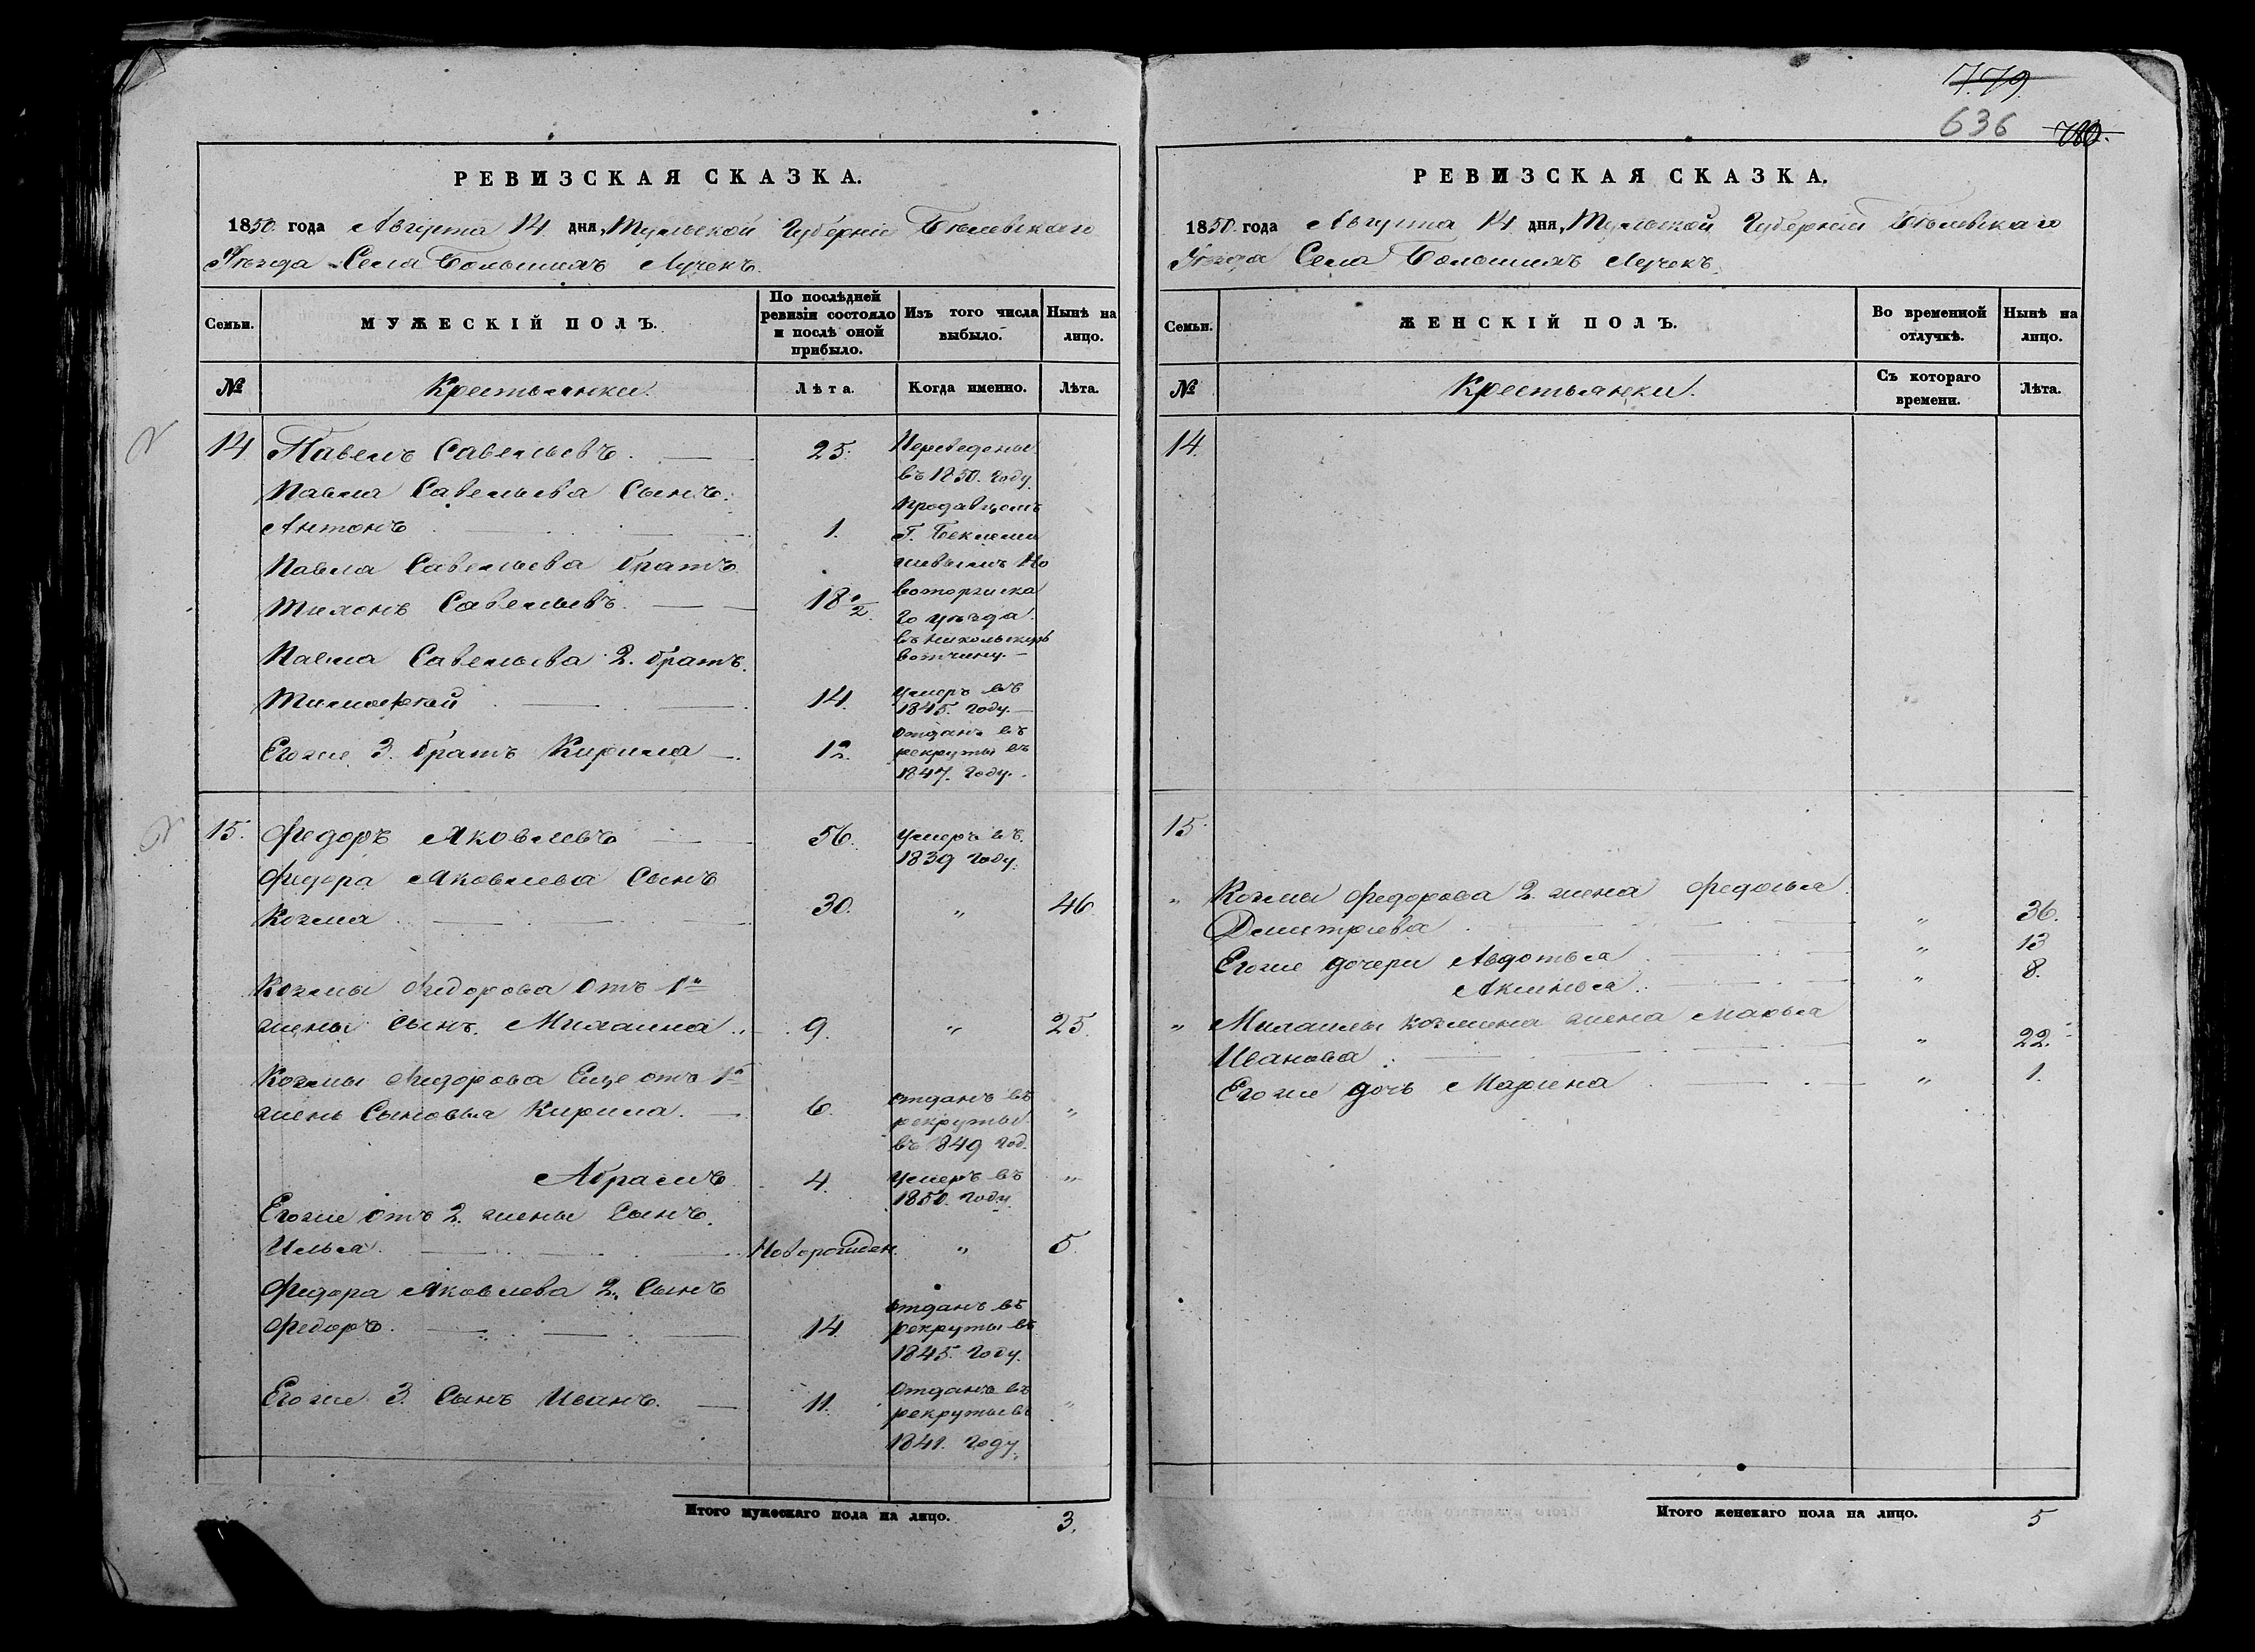 779.
636 780.
РЕВИЗСКАЯ СКАЗКА.
1850 года Августа 14 дня, Тульской Губерніи Бѣлевскаго
Уѣзда Села Большихъ Лучекъ.
Семьи.
МУЖЕСКІЙ ПОЛЪ.
По послѣдней ревизіи состояло и послѣ оной прибыло.
Изъ того числа выбыло.
Нынѣ на лицо.
№
Крестьянки.
Лѣта.
Когда именно.
Лѣта.
14. Павелъ Савельевъ. 25. Переведены
въ 1850. году
Павла Савельева Сынъ.
продавцомъ
Антонъ 1. Г. Беклеми
Павла Савельева братъ шевымъ Но
Тихонъ Савельевъ. 18 1/2. воторжска
го уѣзда
въ Никольскую
Павла Савельева 2. братъ. вотчину.
Тимофей 14. умеръ въ
1845. году.
Егоже 3. братъ Кирила 12. отданъ въ
рекруты въ
1847. году.
15. Федоръ Яковлевъ 56. умеръ въ
1839 году.
Федора Яковлева Сынъ
Козма 30. „ 46.
Козмы Федорова отъ 1й
жены сынъ. Михаила 9. „ 25.
Козмы Федорова Еще отъ 1й
жены Сыновья Кирила. 6. отданъ въ „
рекруты
въ 1849 год.
Абрамъ 4. умеръ въ „
1850. году
Егоже отъ 2. жены Сынъ.
Илья. Новорожден. „ 5.
Федора Яковлева 2. Сынъ
Федоръ. 14. отданъ въ
рекруты въ
1845. году.
Егоже 3. Сынъ Иванъ. 11. отданъ въ „
рекруты въ
1841. году.
Итого мужескаго пола на лицо. 3.
РЕВИЗСКАЯ СКАЗКА.
1850. года Августа 14 дня, Тульской Губерніи Бѣлевскаго
Уѣзда Села Большихъ Лучекъ.
Семьи.
ЖЕНСКІЙ ПОЛЪ.
Во временной отлучкѣ.
Нынѣ на лицо.
№
Крестьянки.
Съ котораго времени.
Лѣта.
14.
15.
„ Козмы Федорова 2. жена Федосья
Дмитрева „ 36.
Егоже дочери Авдотья „ 13
Аксинья. „ 8.
„ Михаилы Козмина жена Марья
Иванова „ 22.
Егоже дочь Марина „ 1.
Итого женскаго пола на лицо. 5